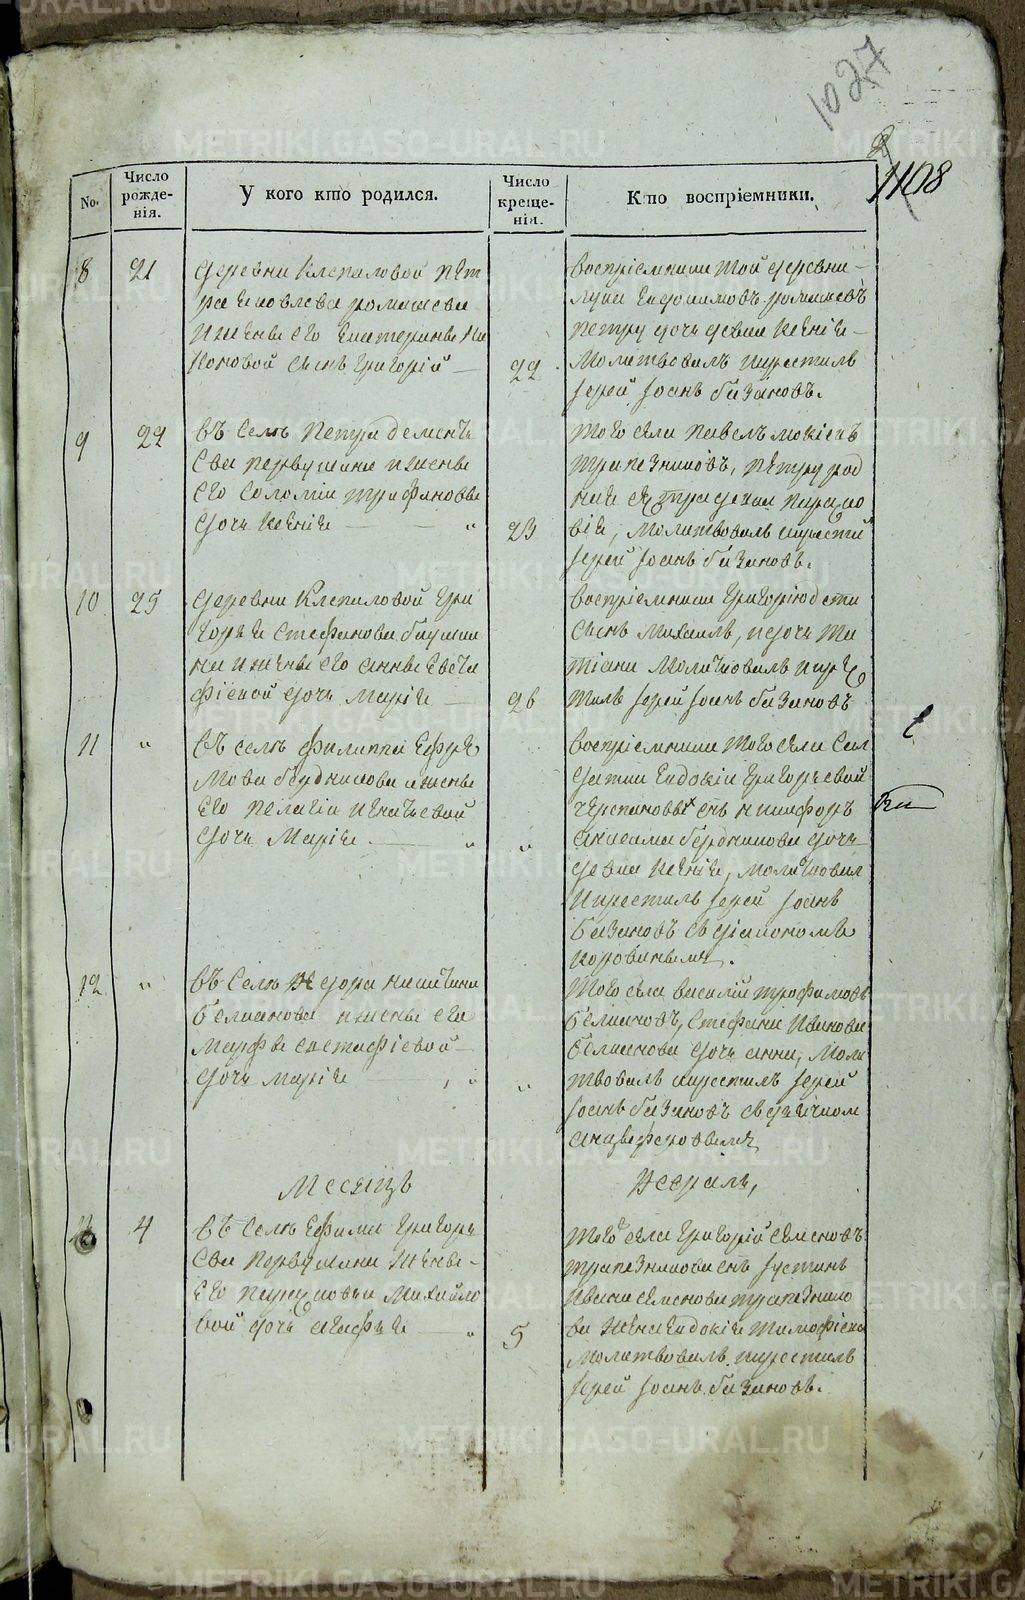 1027
1108
No.
Число рожде-нія.
У кого кто родился.
Число креще-нія.
Кто воспріемники.
8 21
деревни Клепаловой Пет
ра Яковлева
и жены его Екатерины Ни
коновой сынъ Григорій
22
воспріемники той деревни
Лука Евдокимовъ
Петру дочь девка Ксенія
Молитвовалъ и крестилъ
Іерей Іоаннъ Бизяновъ.
9 22
въ селѣ Петра Демень
ева Первушина и жены
его Соломіи Трифановы
дочь Ксенія
23
того села Павелъ Мокіевъ
Трапезниковъ, Петру род
ная сестра девка Параско
вія, Молитвовалъ и крести
Іерей Іоаннъ Бизяновъ.
10 25
деревни Клепаловой Гри
горья Стефанова
на и жены его Анны Евста
фіевой дочь Марія
26
воспріемники Григорію дети
сынъ Михаилъ, и дочь Та
тіана Молитвовалъ и крес
тилъ Іерей Іоаннъ Бизяновъ
11 "
въ селѣ Филиппа Ефре
мова Бердникова и жены
его Пелагіи Игнатьевой
дочь Марія "
"
воспріемники того села Сол
датки Евдокіи Григорьевой
Черепановы снъ Никифоръ
Анисима Бердникова дочь
девка Ксенія, Молитвовал
и крестилъ Іерей Іоаннъ
Бизяновъ с діакономъ
Коровинымъ.
12 "
въ селѣ Федора Никитина
Белианова и жены его
Марфы Евстафіевой
дочь Марія "
"
того села Василій Трофимовъ
Белиановъ, Стефана Иванова
Белианова дочь Анна, Моли
твовалъ и крестилъ Іерей
Іоаннъ Бизяновъ с дьячком
Анцыферовымъ
Месяцъ Февраль,
4
въ селѣ Ефима Григорь
ева Первушина жены
его Парасковьи Михайло
вой дочь Агафья "
5
того села Григорій Семеновъ
Трапезникова снъ Іустинъ
Ивана Семенова Трапезнико
ва жена Евдокія Тимофеева
Молитвовалъ и крестилъ
Іерей Іоаннъ Бизяновъ.
METRIKI.GASO-URAL.RU